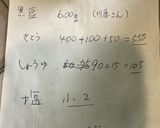 黒豆 600g
さとう 400+100+50=550
しょうゆ 90+15=105
塩 小2